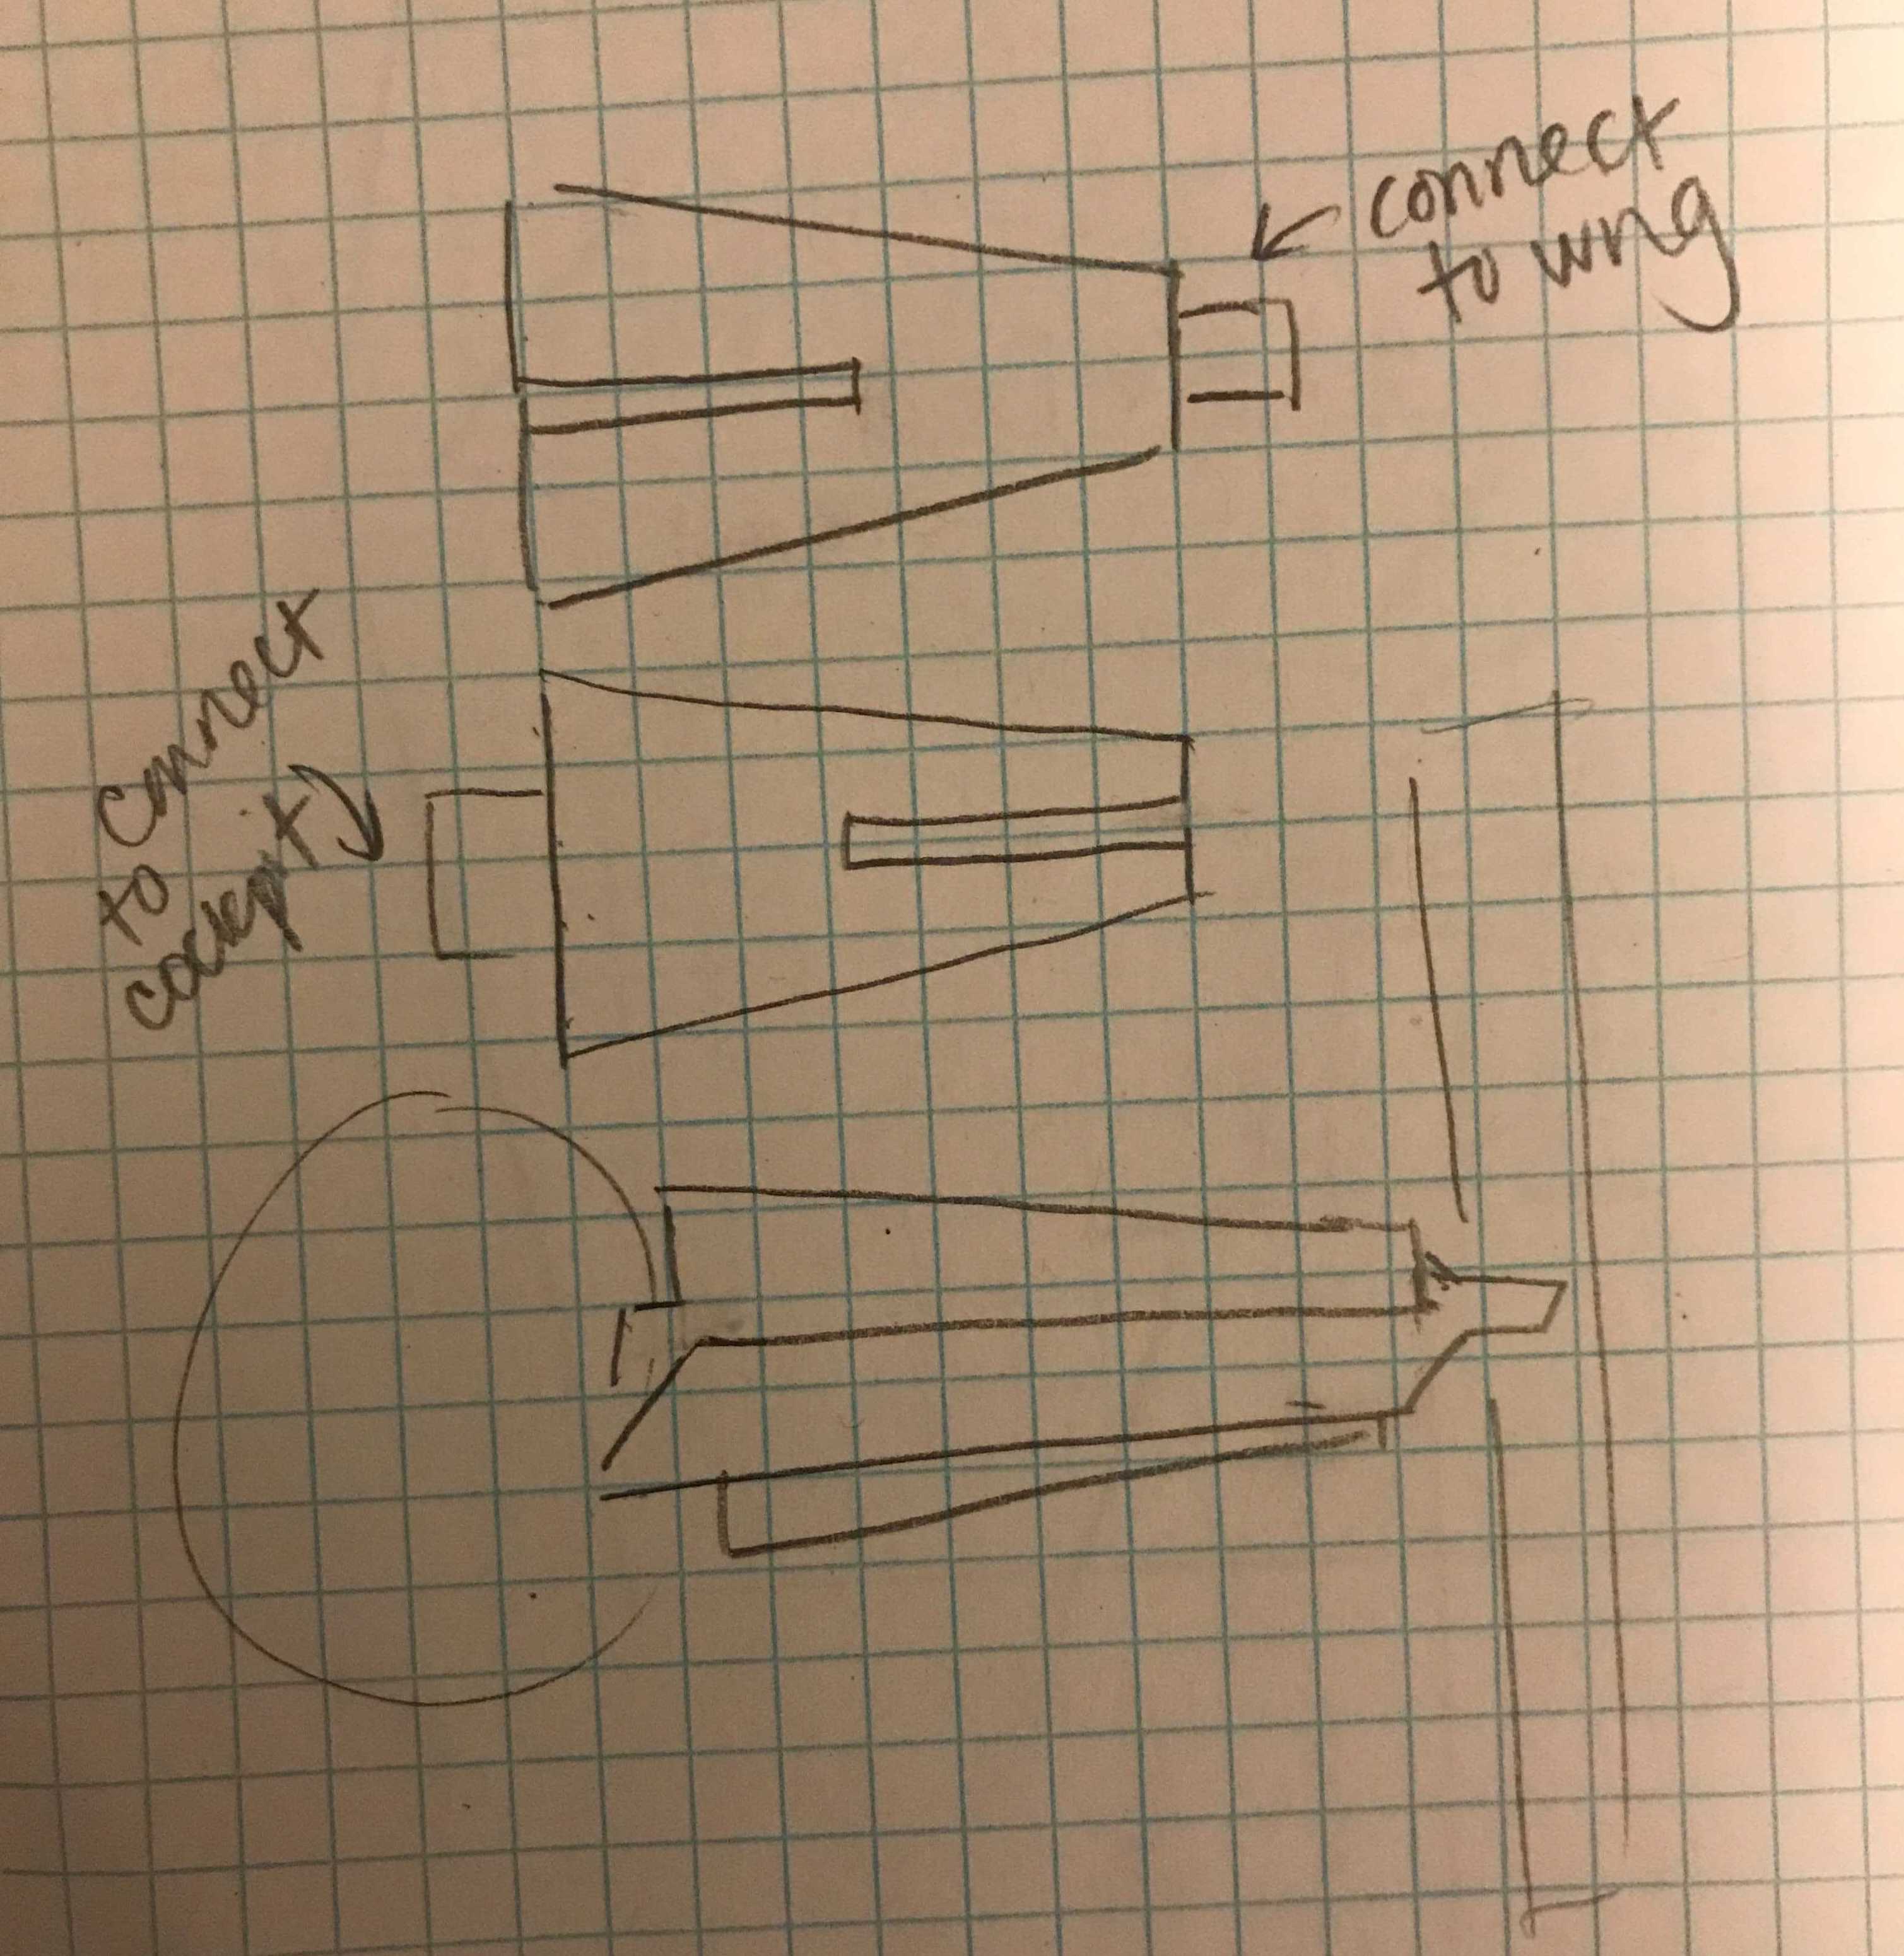 connect
to wing
connect
to
cockpit